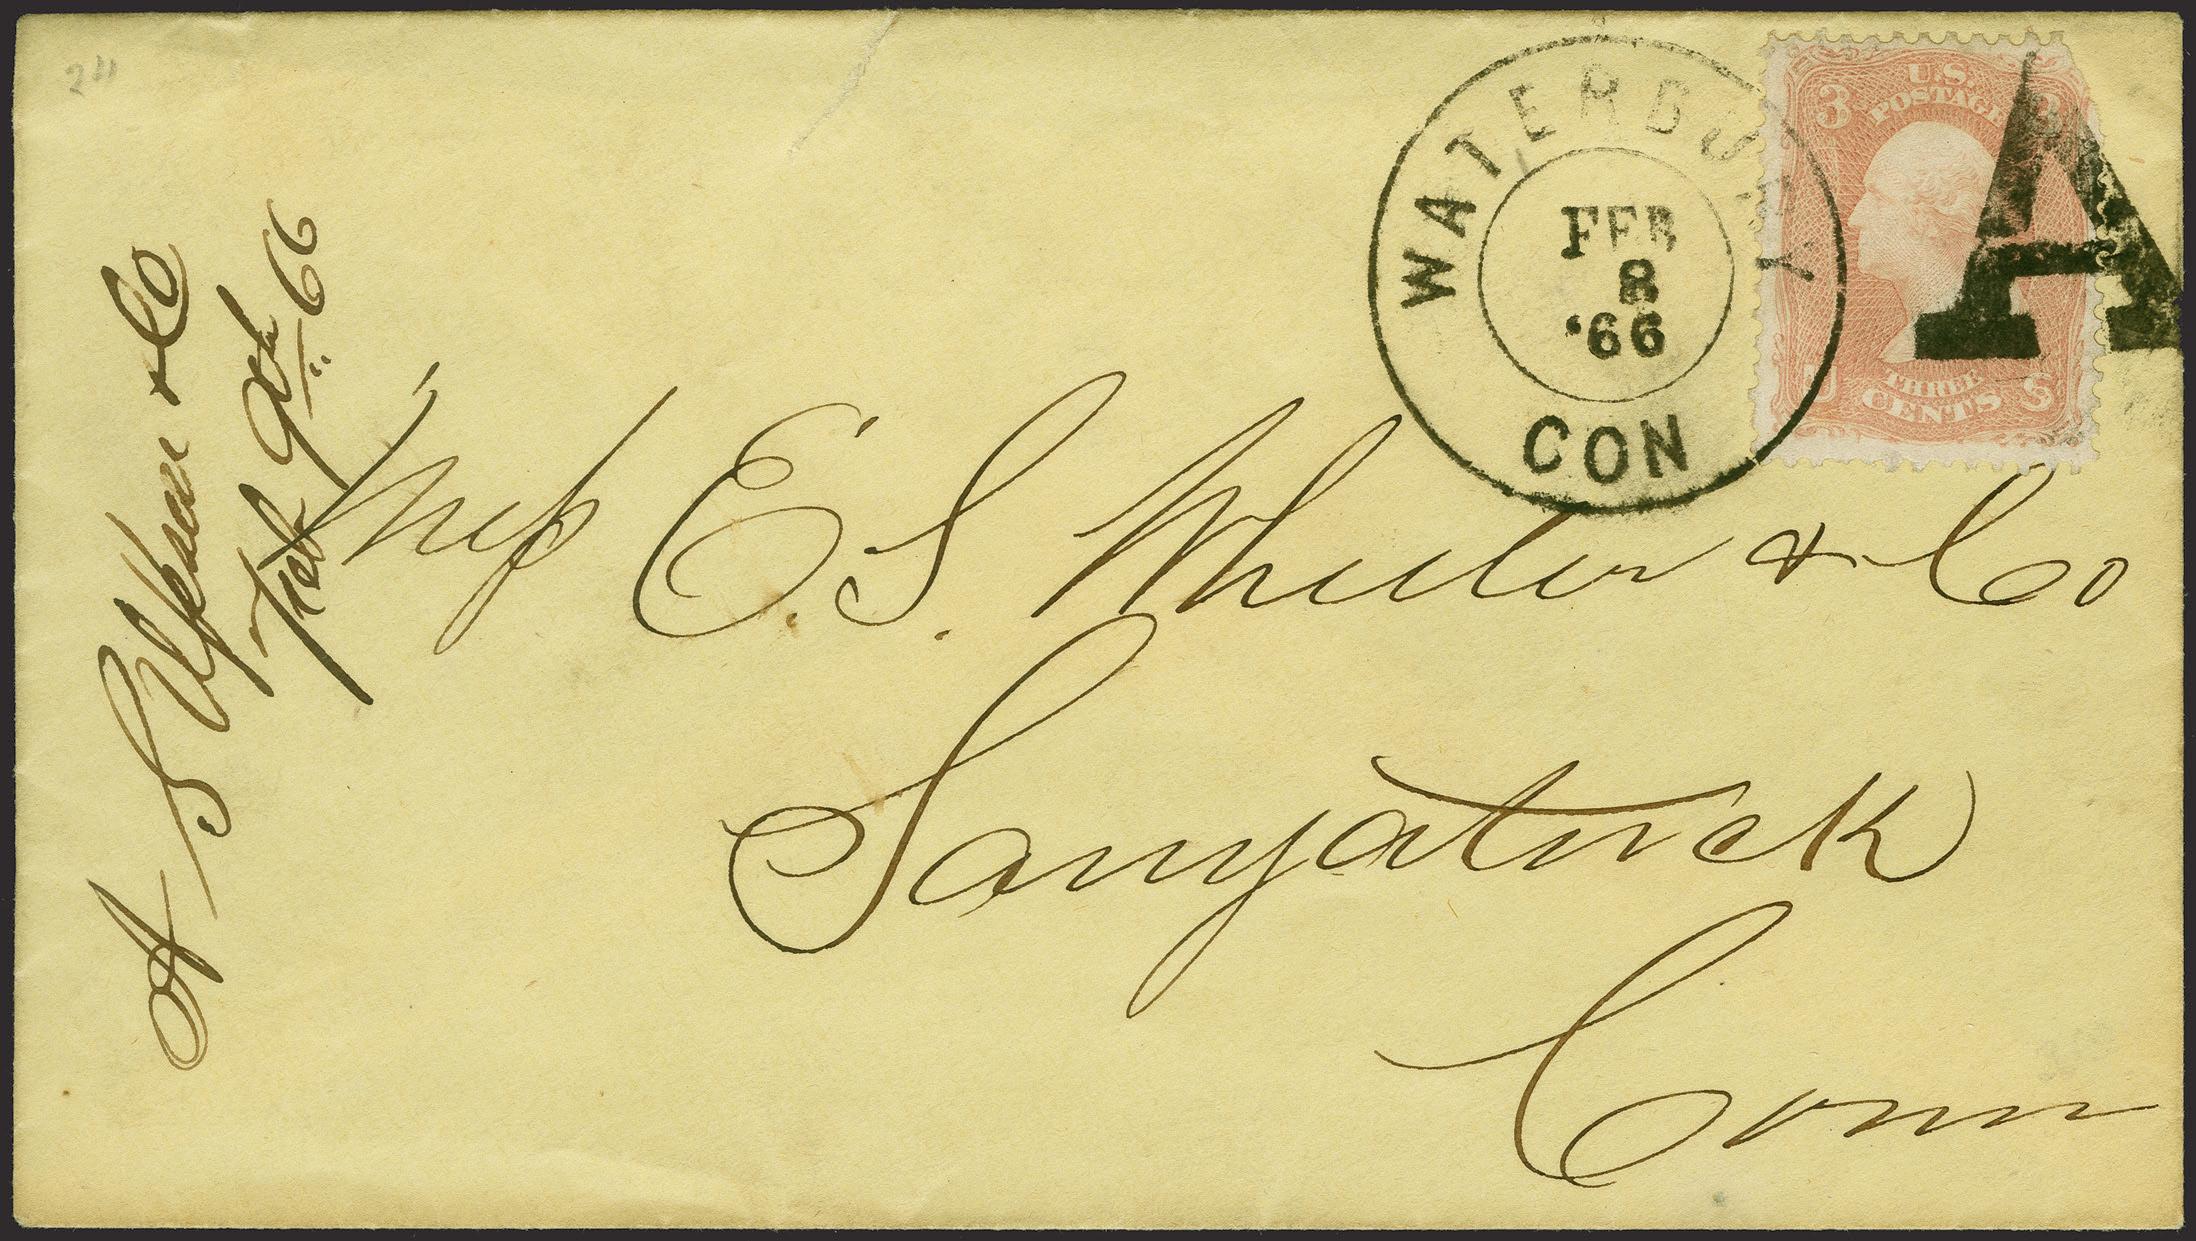 24
WATERBURY
FEB
8
'66
CON
U.S.
POSTAGE
3 3
THREE
U CENTS S
A
Mess E. S. Wheeler & Co
Saugatuck
Conn
A S & Co
Feb 9th 66